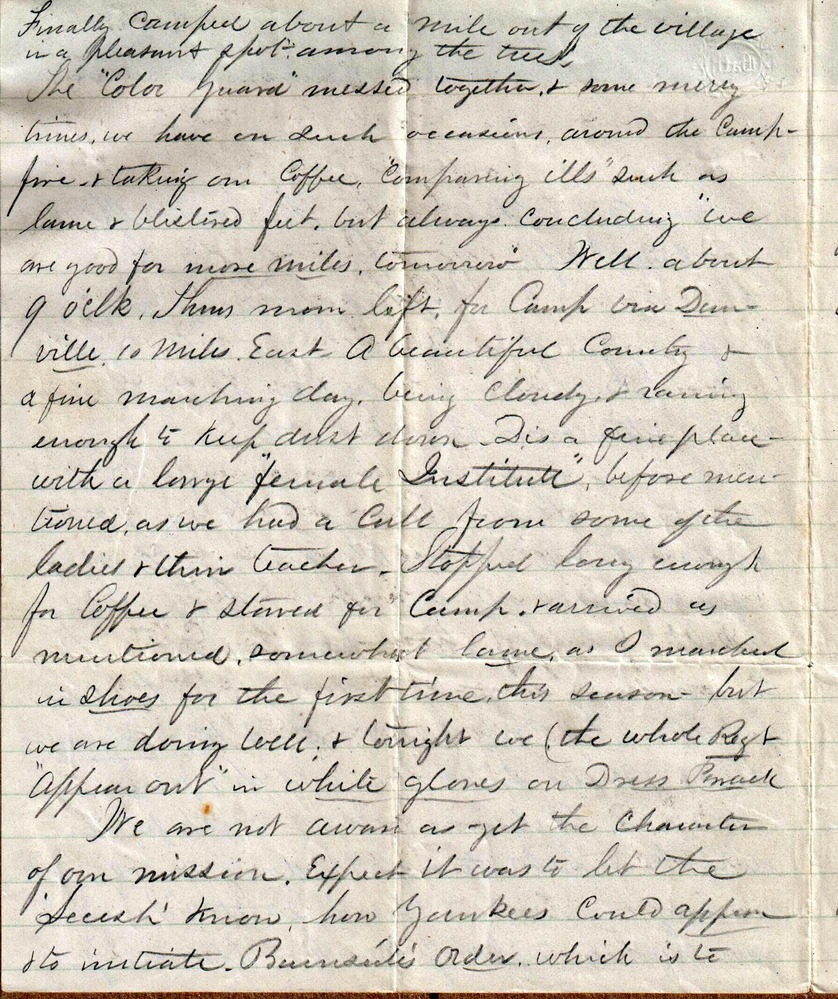 Finally camped about a mile out of the village
in a pleasant spot among the trees
The "Color Guard" messed together, & some merry
times, we have on such occasions, around the Camp-
fire & taking our Coffee, "Comparing ills" such as
lame & blistered feet, but always concluding "we
are good for more miles, tomorrow" Well. about
9 o'clk, Thurs morn left, for Camp via Dan-
ville, 10 Miles. East A beautiful County &
a fine marching day, being cloudy, & raining
enough to keep dust down. D is a fine place
with a large "female Institute", before men-
tioned, as we had a Call from some of the
ladies & their teacher. Stopped long enough
for Coffee & started for "Camp. & arrived as
mentioned, somewhat lame, as I marched
in shoes for the first time, this season - but
we are doing well, & tonight we (the whole Regt
"Appear out" in white gloves on Dress Parade
We are not aware as yet the Character
of our mission. Expect it was to let the
'Secesh' know, how Yankees Could appear
& to initiate. Burnside's Order, which is to